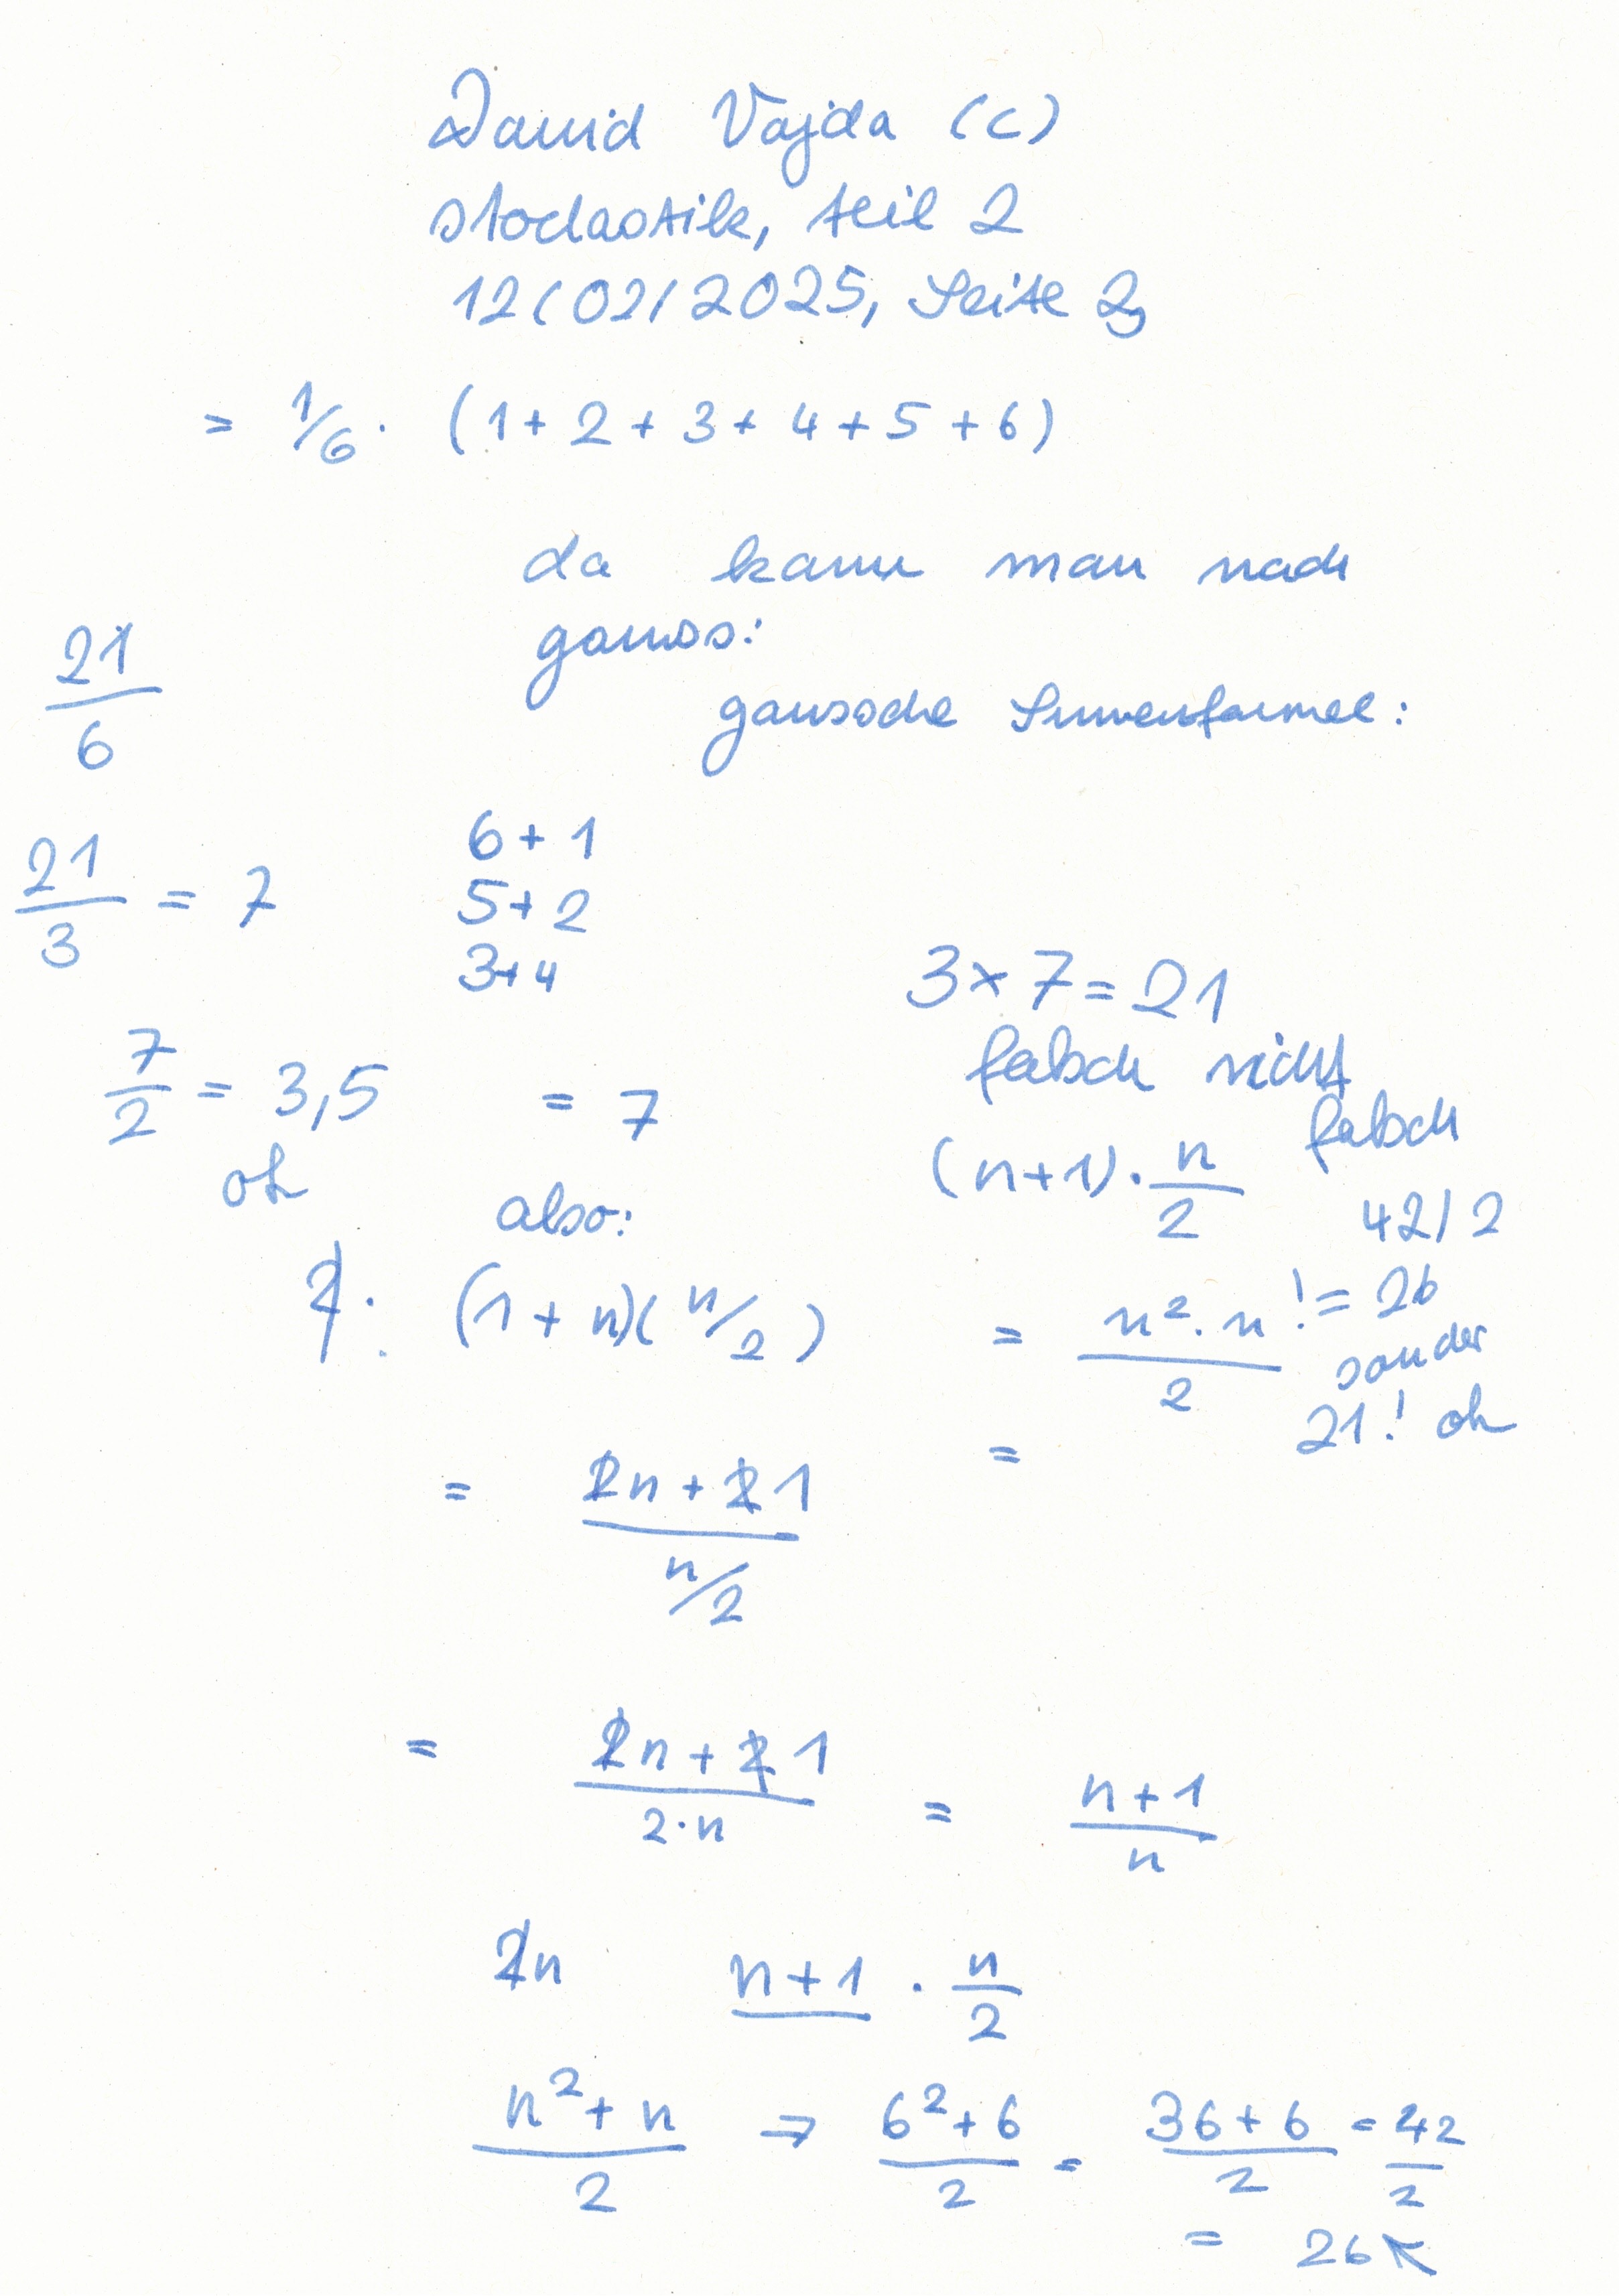 David Vajda (C)
stochastik, teil 2
12/02/2025, Seite 2,
= 1/6 · (1 + 2 + 3 + 4 + 5 + 6)
da kann man nach
gauss:
21/6
gaussche Summenformel:
6 + 1
21/3 = 7
5 + 2
3+4
3 × 7 = 21
falsch nicht
falsch
7/2 = 3,5
= 7
ok
(n+1) · n/2
42/2
also:
(1 + n)(n/2)
= n² · n / 2
! = 26
sonder
21! ok
=
= n + 1 / n/2
= n + 1 / 2·n = n+1 / n
n n+1 · n/2
n² + n / 2 → 6² + 6 / 2 = 36 + 6 / 2 = 42 / 2
= 26